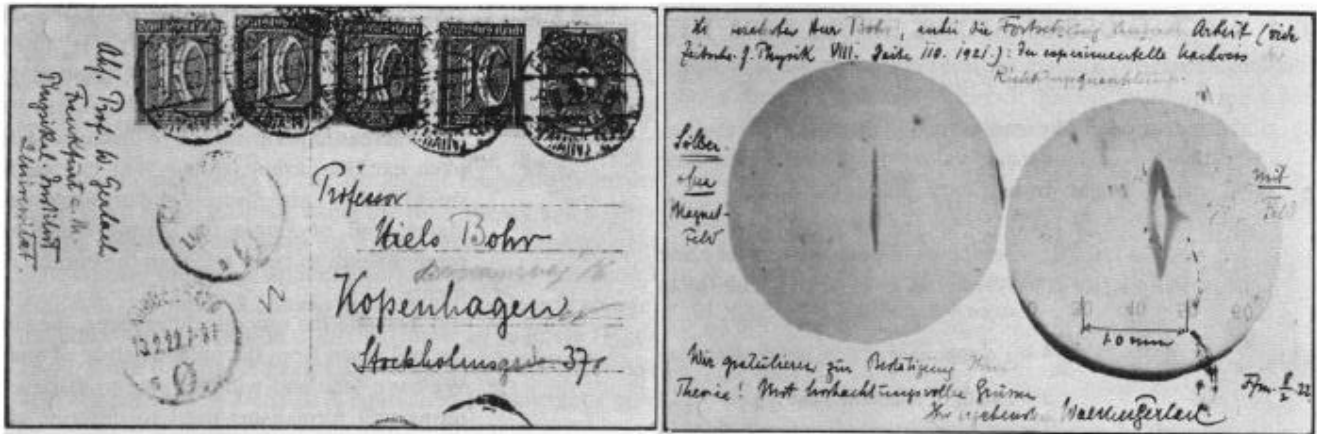 Abs. Prof. W. Gerlach
Frankfurt a. M.
Physikal. Institut
Universität.
10
10
10
10
Professor
Niels Bohr
Kopenhagen
Stockholmsgade 37
Herr Bohr, anbei die Fortsetzung Arbeit (vide
Zeitschr. f. Physik VIII. Seite 110. 1921.): Der experimentelle Nachweis
Richtungsquantelung.
Silber
ohne
Magnet-
Feld
mit
Feld
1.0 mm
Wir gratulieren zur Bestätigung Ihrer
Theorie! Mit hochachtungsvollen Grüssen
Ihr ergebenster Walther Gerlach
Ffm. 8/2 22